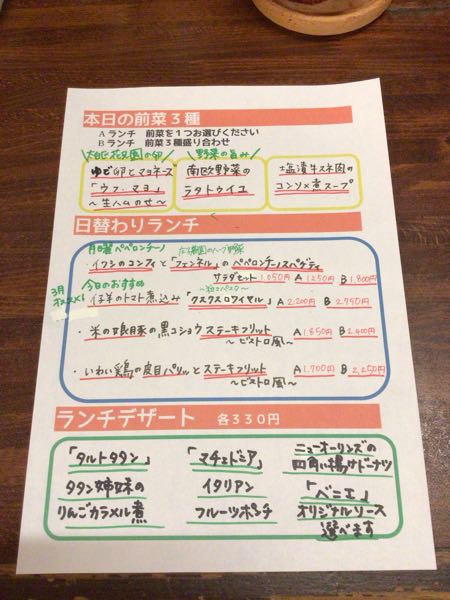 本日の前菜３種
Ａランチ　前菜を１つお選びください
Ｂランチ　前菜３種盛り合わせ
花兄園の卵／
＼野菜の旨み／
ゆで卵とマヨネーズ
「ウフ・マヨ」
～生ハムのせ～
南欧野菜の
ラタトゥイユ
塩漬牛スネ肉の
コンソメ煮スープ
日替わりランチ
月曜ペペロンチーノ
・イワシのコンフィと「フェンネル」のペペロンチーノスパゲティ
サラダセット 1,050円 A 1,250円 B 1,800円
3月
オススメ！
今日のおすすめ
～粒々パスタ～
仔羊のトマト煮込み「クスクスロワイヤル」 A 2,200円 B 2,750円
・米の娘豚の黒コショウステーキフリット A 1,850円 B 2,400円
～ビストロ風～
・いわい鶏の皮目パリッとステーキフリット A 1,700円 B 2,250円
～ビストロ風～
ランチデザート　各３３０円
「タルトタタン」
タタン姉妹の
りんごカラメル煮
「マチェドニア」
イタリアン
フルーツポンチ
ニューオーリンズの
四角い揚げドーナツ
「ベニエ」
オリジナルソース
選べます